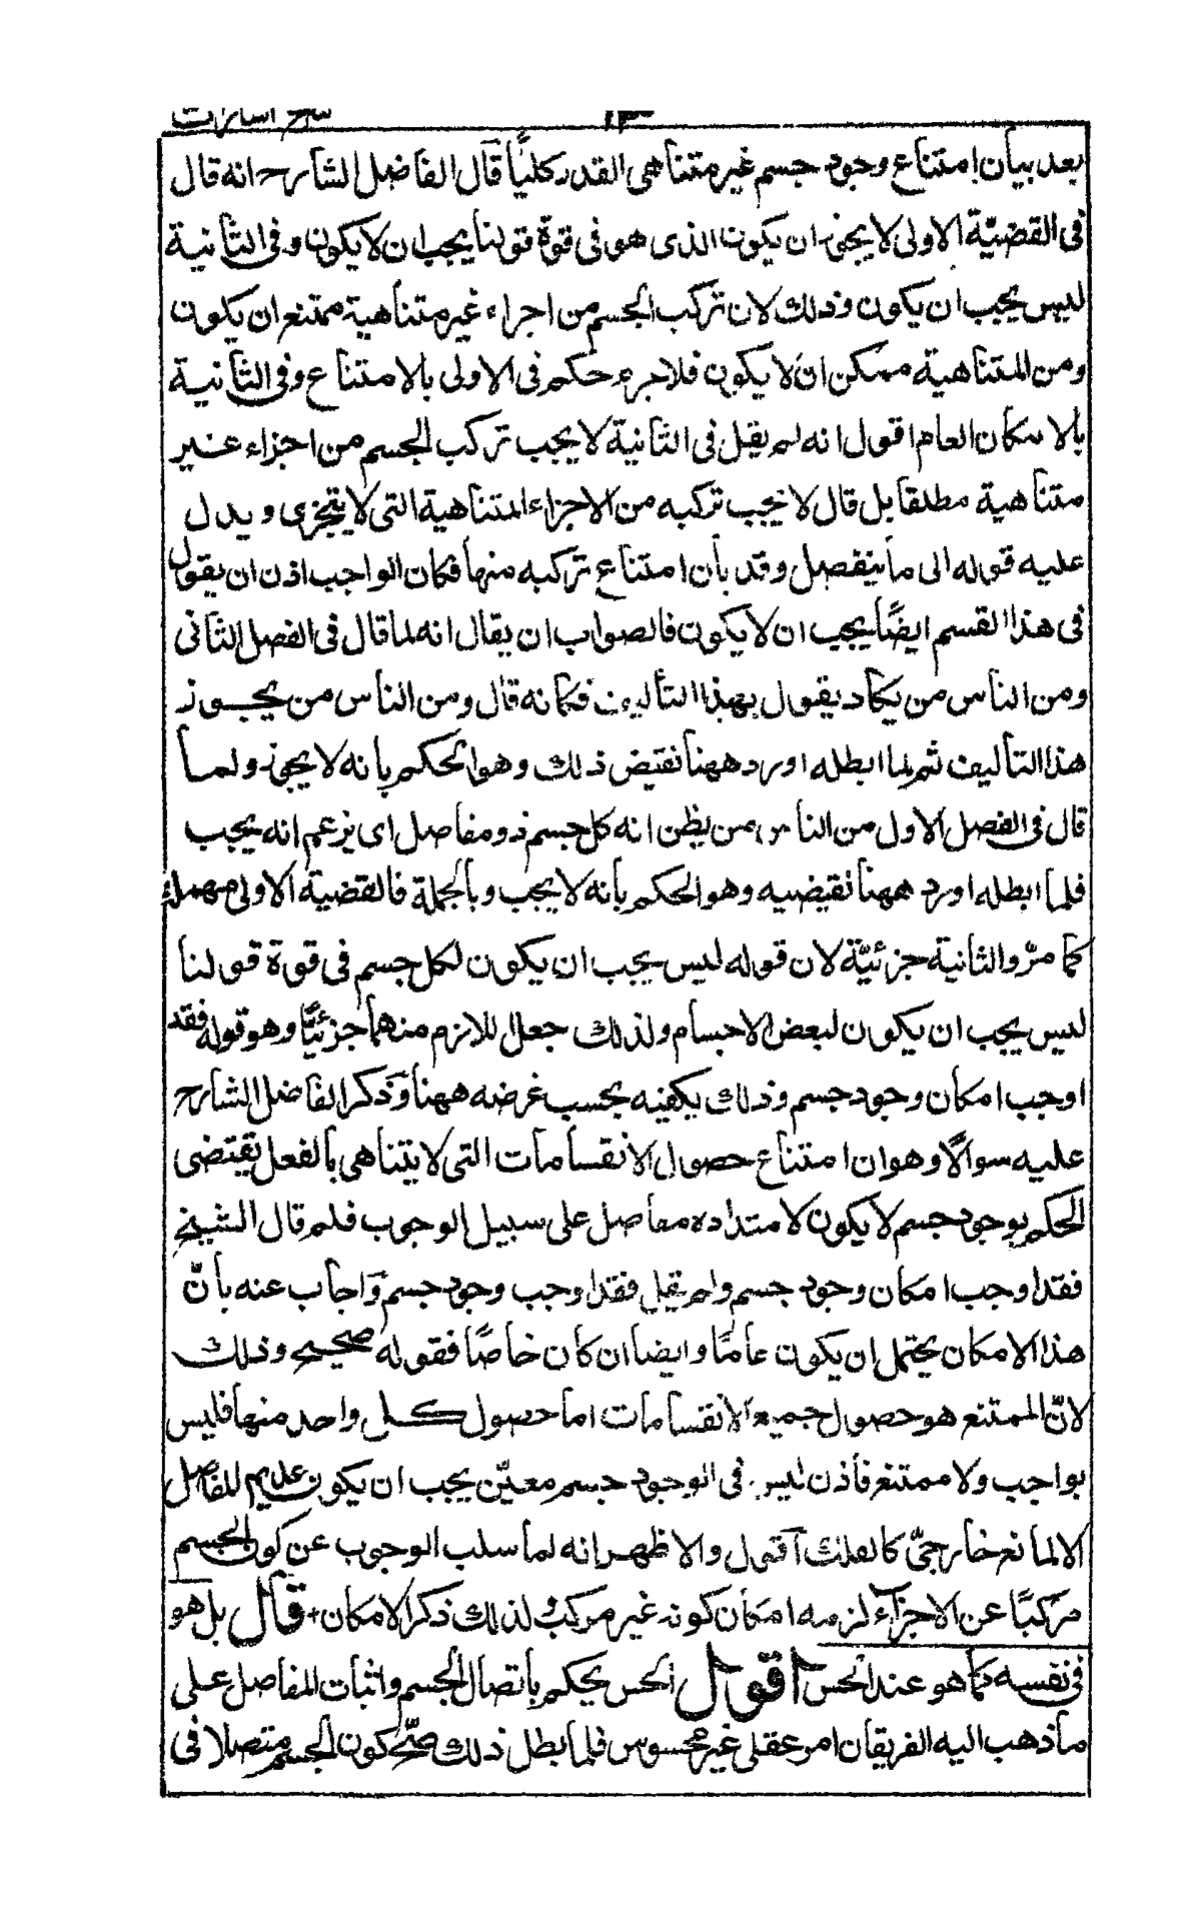 شرح اشارات ١٣
بعد بيان امتناع وجود جسم غير متناهى القدر كليّاً قال الفاضل الشارح انه قال
فى القضيّة الاولى لا يجوز ان يكون الذى هو فى قوة قولنا يجب ان لا يكون وفى الثانية
ليس يجب ان يكون وذلك لان تركب الجسم من اجزاء غير متناهية ممتنع ان يكون
ومن المتناهية ممكن ان لا يكون فلاجرم حكم فى الاولى بالامتناع وفى الثانية
بالامكان العام اقول انه لم يقل فى الثانية لا يجب تركب الجسم من اجزاء غير
متناهية مطلقا بل قال لا يجب تركبه من الاجزاء المتناهية التى لا يتجزى ويدل
عليه قوله الى ما ينفصل وقد بان امتناع تركبه منها فكان الواجب اذن ان يقول
فى هذا القسم ايضًا يجب ان لا يكون فالصواب ان يقال انه لما قال فى الفصل الثانى
ومن الناس من يكاد يقول بهذا التأليف فكانه قال ومن الناس من يجوز
هذا التأليف ثم لما ابطله اورد ههنا نقيض ذلك وهو الحكم بانه لا يجوز ولما
قال فى الفصل الاول من الناس من يظن انه كل جسم ذو مفاصل اى يزعم انه يجب
فلما ابطله اورد ههنا نقيضيه وهو الحكم بأنه لا يجب وبالجملة فالقضية الاولى مهملة
كما مرّ والثانية جزئيّة لان قوله ليس يجب ان يكون لكل جسم فى قوة قولنا
ليس يجب ان يكون لبعض الاجسام ولذلك جعل اللازم منهما جزئيًّا وهو قوله فقد
اوجب امكان وجود جسم وذلك يكفيه بحسب غرضه ههنا وذكر الفاضل الشارح
عليه سوالًا وهو ان امتناع حصول الانقسامات التى لا يتناهى بالفعل يقتضى
الحكم بوجود جسم لا يكون لامتداده مفاصل على سبيل الوجوب فلم قال الشيخ
فقد اوجب امكان وجود جسم ولم يقل فقد اوجب وجود جسم واجاب عنه بأنّ
هذا الامكان يحتمل ان يكون عامًّا وايضا ان كان خاصًّا فقوله صحيح وذلك
لانّ الممتنع هو حصول جميع الانقسامات اما حصول كل واحد منها فليس
بواجب ولا ممتنع فأذن ليس فى الوجود جسم معيّن يجب ان يكون عديم المفاصل
الا لمانع خارجىّ كالفلك اقول والاظهر انه لما سلب الوجوب عن كون الجسم
مركبًا عن الاجزاء لزمه امكان كونه غير مركب فلذلك ذكر الامكان قال بل هو
فى نفسه كما هو عند الحس اقول الحس يحكم باتصال الجسم واثبات المفاصل على
ما ذهب اليه الفريقان امر عقلى غير محسوس فلما بطل ذلك صحّ كون الجسم متصلا فى